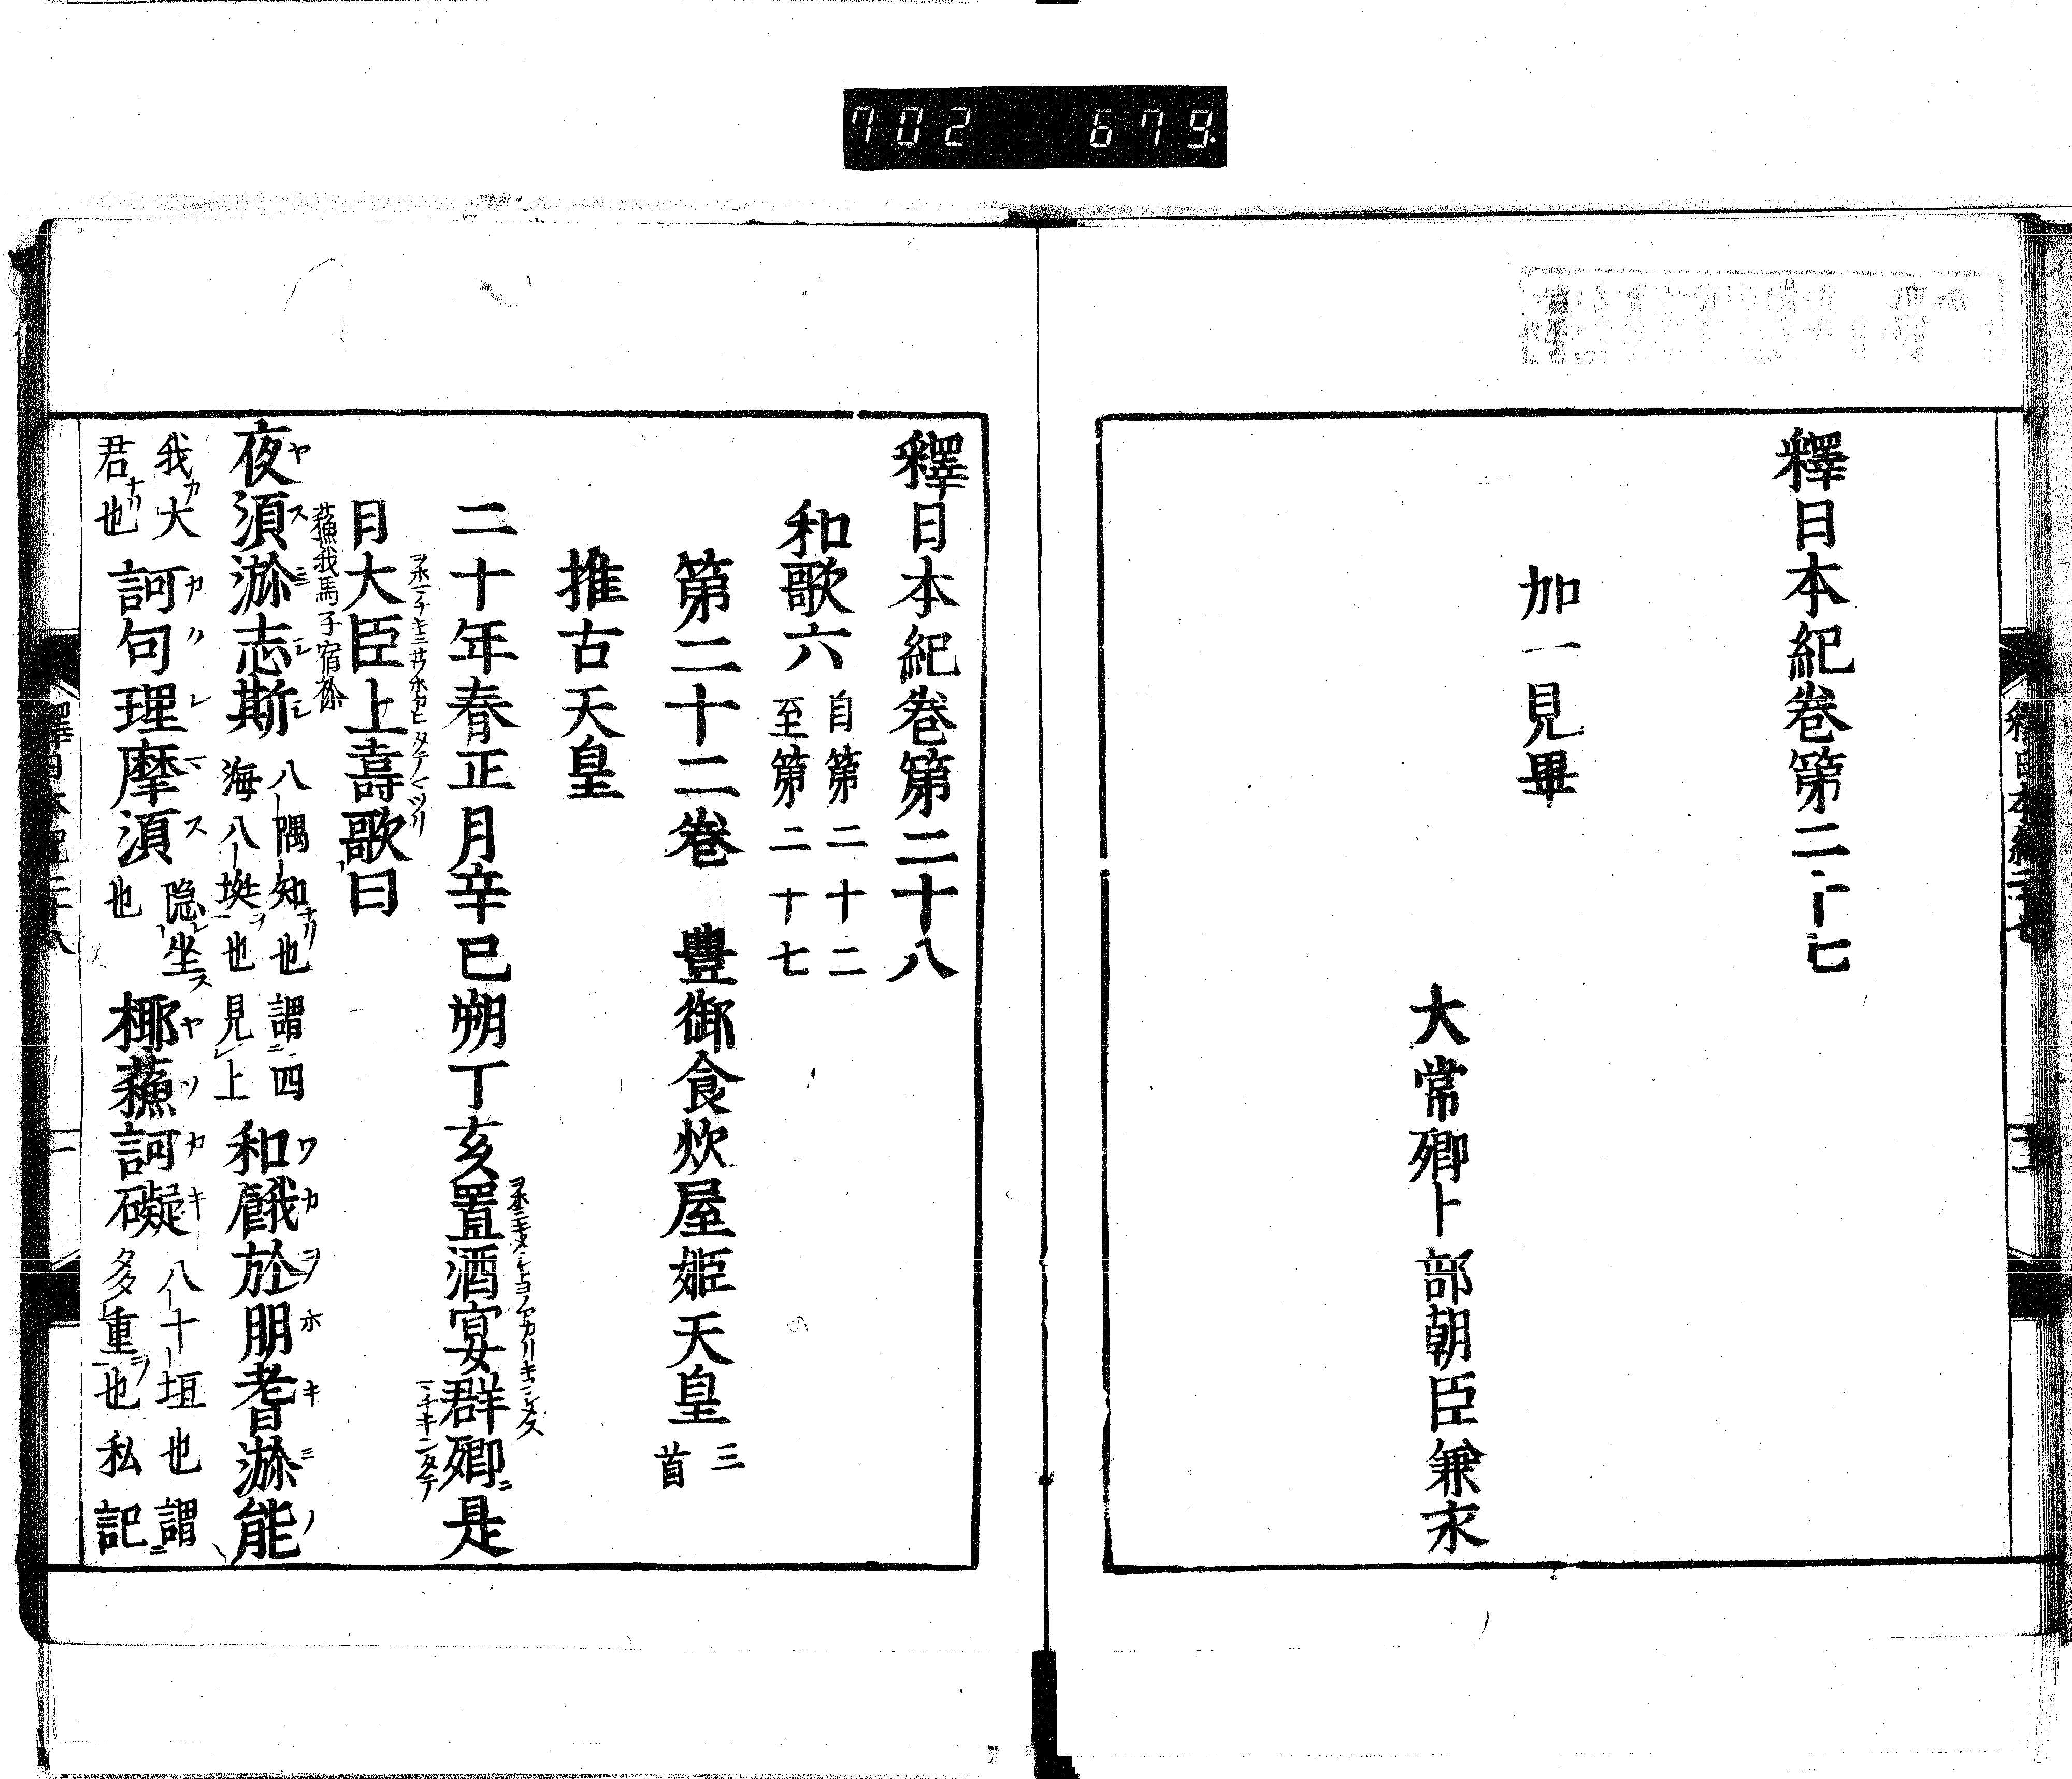 702 679
釋日本紀卷第二十七
加一見畢
大常卿卜部朝臣兼永
釋日本紀卷第二十八
和歌六 自第二十二 至第二十七
第二十二卷 豐御食炊屋姬天皇 三首
推古天皇
二十年春正月辛巳朔丁亥置酒宴群卿是
日大臣上壽歌曰
蘓我馬子宿祢
夜須濔志斯 八隅知也 謂四海八埏也 見上 和餓於朋耆濔能
我大君也 訶句理摩須 隐坐也 椰蘓訶礙 八十垣也 謂多重也 私記